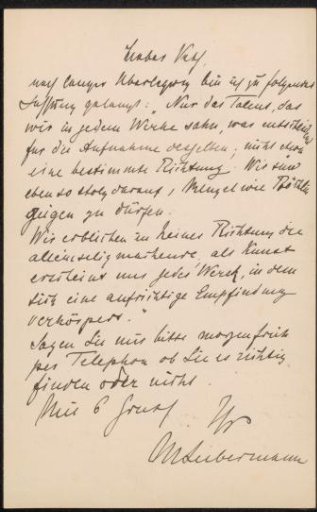 Lieber Veth,
nach langer Überlegung bin ich zu folgender
Fassung gelangt: „Nur das Talent, das
wir in jedem Werke sahn, war entscheidend
für die Aufnahme desselben; nicht etwa
eine bestimmte Richtung. Wir sind
ebenso stolz darauf, Menzel wie Böcklin
zeigen zu dürfen.
Wir erblicken in keiner Richtung die
alleinseligmachende, als Kunst
erscheint uns jedes Werck, in dem
sich eine aufrichtige Empfindung
verkörpert."
Sagen Sie mir bitte morgen früh
per Telephon ob Sie es richtig
finden oder nicht.
Mit b Gruß Ihr
MLiebermann